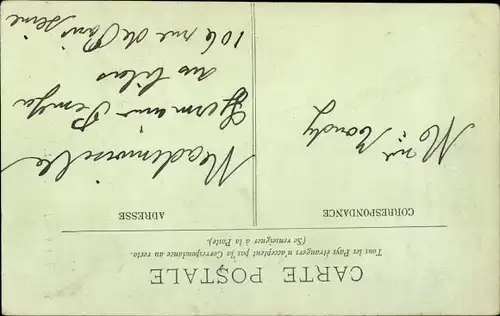 CARTE POSTALE
Tous les Pays étrangers n'acceptent pas la Correspondance au recto.
(Se renseigner à la Poste).
CORRESPONDANCE
ADRESSE
Mademoiselle
Germaine
aux Lilas
106 rue de Paris Seine